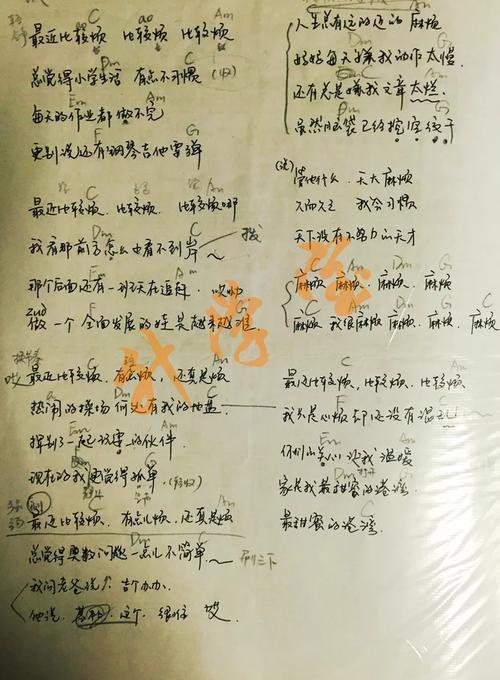 C ao Am
最近比较烦 比较烦 比较烦
Dm C
总觉得小学生活 有点不习惯
Em Am
每天的作业都做不完
F G
更别说还有钢琴吉他要弹
C Am
最近比较烦 比较烦 比较烦哪
Dm C
我看那前方怎么也看不到岸 拨
Em Am
那个后面还有一班天在追赶
zuo F G
做一个全面发展的娃是越来越难
C Am
哎 最近比较烦,有点烦,还真是烦
Dm C
热闹的操场何处有我的地盘
Em Am
挥别了一起玩耍的伙伴
F G
现在的我更觉得孤单
C Am
最近比较烦 有点儿烦 还真是烦
Dm C
总觉得奥数问题一点儿不简单 刷三下
我问老爸说
他说 这个 很难
人生总有这的还的麻烦
妈妈每天嫌我动作太慢
Em Am
还有总是嫌我文章太烂
Dm G
虽然脑袋已经挖空绞干
(说)
管他什么 天大麻烦
久而久之 我会习惯
天下没有不努力的天才
C Am Dm G
麻烦 麻烦 麻烦 麻烦
C Am Dm G C
麻烦 我很麻烦 麻烦 麻烦 麻烦
C Am
最近比较烦,比较烦 比较烦
Dm C
我只是心烦却还没有混乱
Em Am
你们的关心让我温暖
Dm G
家是我最甜蜜的港湾
C
最甜蜜的港湾
升学谷